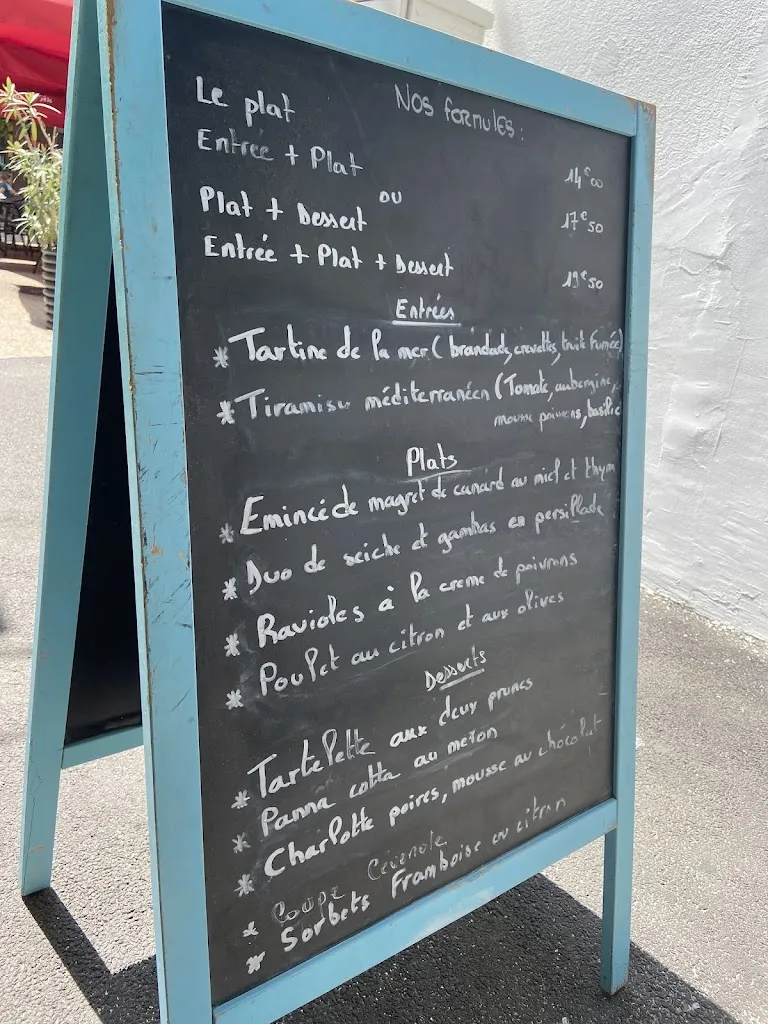 Nos formules :
Le plat 14€00
Entrée + Plat
ou
Plat + Dessert 17€50
Entrée + Plat + Dessert 19€50
Entrées
* Tartine de la mer ( brandade, crevettes, truite fumée)
* Tiramisu méditerranéen (Tomate, aubergine,
mousse poivrons, basilic
Plats
* Emincé de magret de canard au miel et thym
* Duo de seiche et gambas en persillade
* Ravioles à la creme de poivrons
* Poulet au citron et aux olives
Desserts
* Tartelette aux deux prunes
* Panna cotta au melon
* Charlotte poires, mousse au chocolat
* Coupe Cevenole
* Sorbets Framboise ou citron